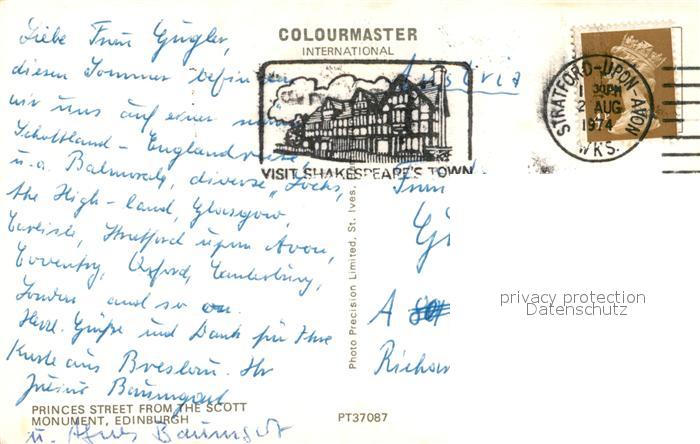 COLOURMASTER
INTERNATIONAL
Liebe Frau Gugler,
diesen Sommer befinden
wir uns auf einer
Schottland - England
u.a. Balmoral, diverse "Lochs,
the High-land, Glasgow,
Carlisle, Stratford upon Avon,
Coventry, Oxford, Canterbury,
London and so on.
Herzl. Grüße und Dank für Ihre
Karte aus Breslau. Ihr
Baumgart
u. Agnes Baumgart
PRINCES STREET FROM THE SCOTT
MONUMENT, EDINBURGH
PT37087
Photo Precision Limited, St. Ives,
VISIT SHAKESPEARE'S TOWN
STRATFORD-UPON-AVON
30PM
2 AUG
1974
WKS.
Austria
Frau
A
privacy protection
Datenschutz